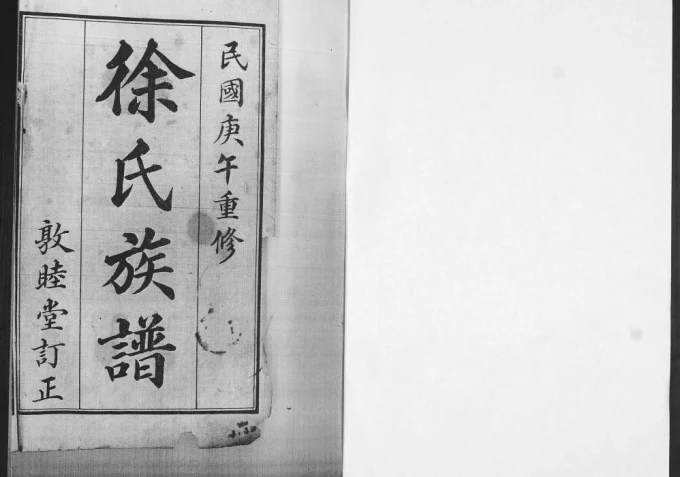 民國庚午重修
徐氏族譜
敦睦堂訂正